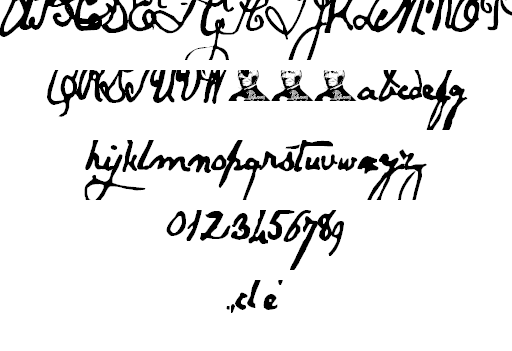 ABCDEFGHIJKLMNOP
QRSTUVW abcdefg
hijklmnopqrstuvwxyz
0123456789
.,cl e'